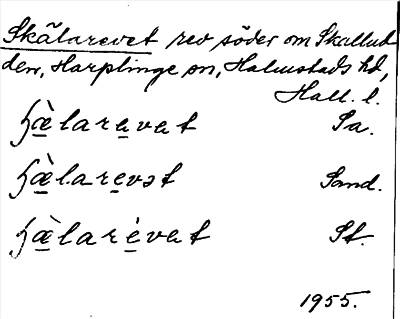 Skälarevet rev söder om Skallud-
den, Harplinge sn, Halmstads hd,
Hall. l.
ɧæ̀larevat Sa.
ɧæ̀larevət Sand.
ɧæ̀larévat St.
1955.